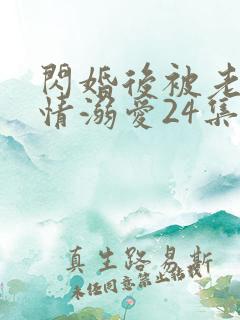 閃婚後被老
情溺愛24集
真生路易斯
未任同意禁止転載